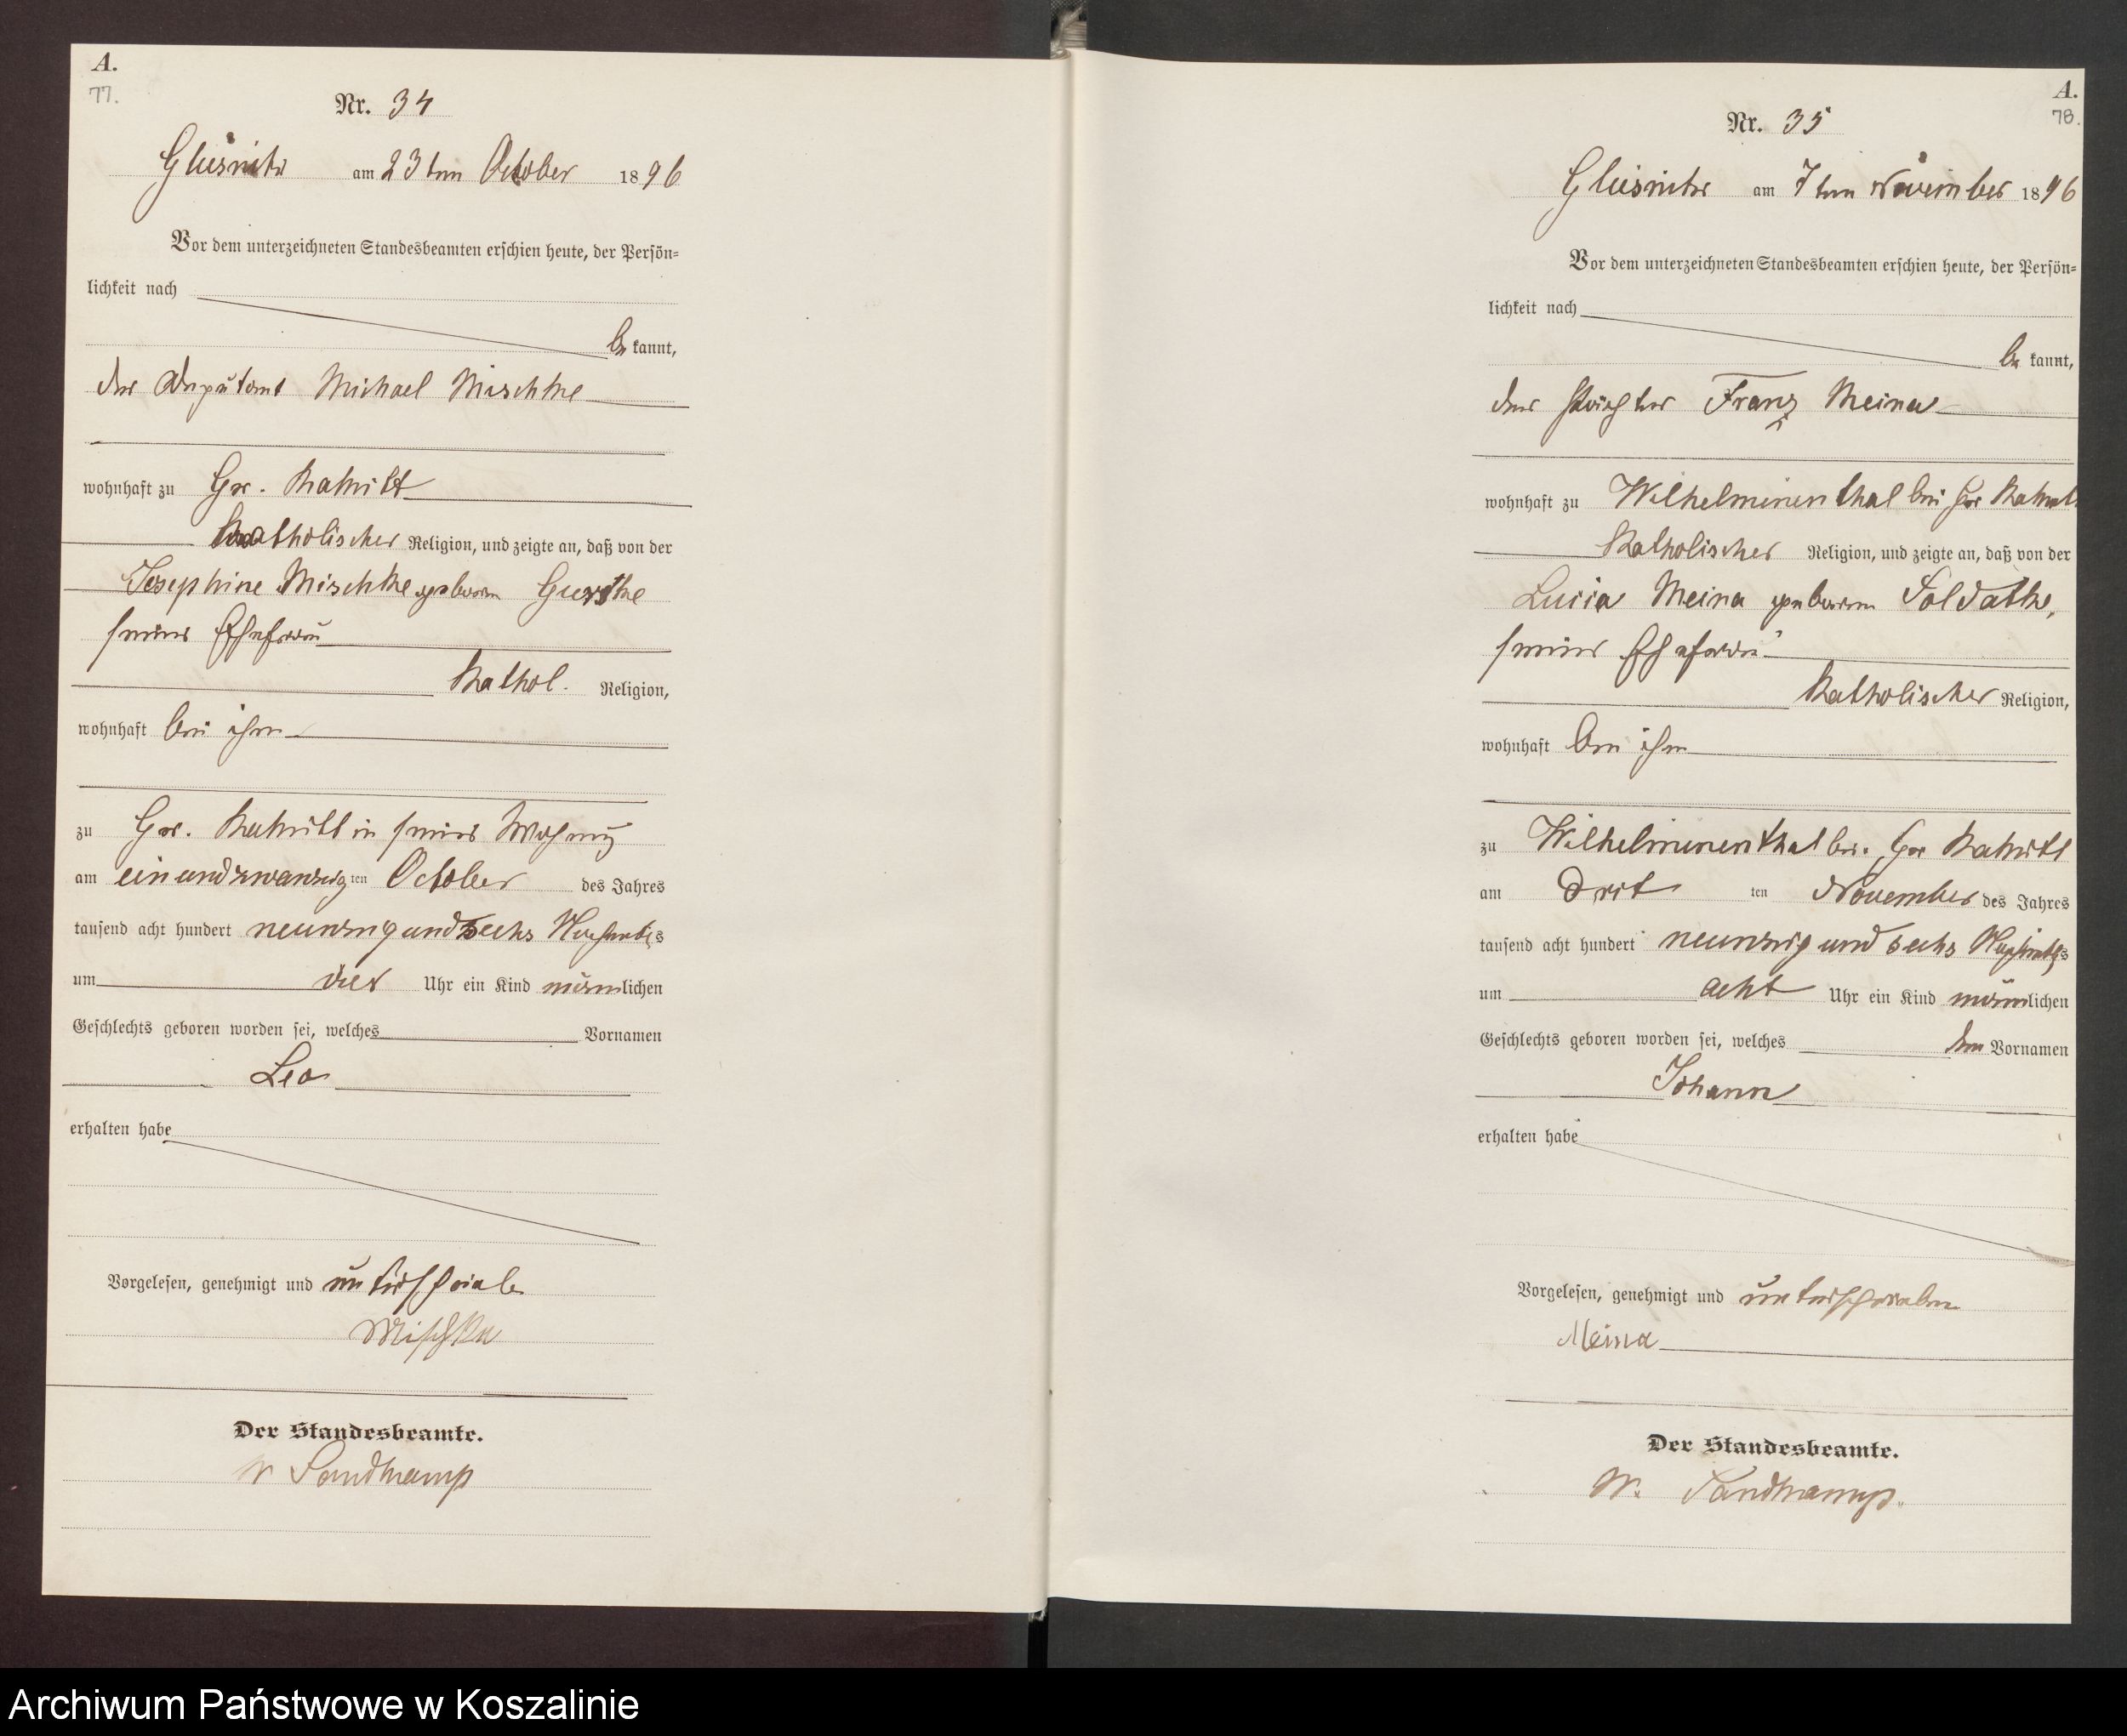 A.
77.
Nr. 34
Glusnitz am 23ten October 1896
Vor dem unterzeichneten Standesbeamten erschien heute, der Persön=
lichkeit nach
be kannt,
der Deputant Michael Mischke
wohnhaft zu Gr. Rakitt
katholischer Religion, und zeigte an, daß von der
Josephine Mischke geboren
seiner Ehefrau
Kathol. Religion,
wohnhaft bei ihm
zu Gr. Rakitt in seiner Wohnung
am einundzwanzig ten October des Jahres
tausend acht hundert neunzig und sechs Nachmittags
um vier Uhr ein Kind männlichen
Geschlechts geboren worden sei, welches Vornamen
Leo
erhalten habe
Vorgelesen, genehmigt und unterschrieben
Mischke
Der Standesbeamte.
W Sandkamp
A.
78.
Nr. 35
Glusnitz am 7ten November 1896
Vor dem unterzeichneten Standesbeamten erschien heute, der Persön=
lichkeit nach
be kannt,
der Franz Meina
wohnhaft zu Wilhelminenthal bei Gr Rakitt
Katholischer Religion, und zeigte an, daß von der
Lucia Meina geboren Soldatke,
seiner Ehefrau
Katholischer Religion,
wohnhaft bei ihm
zu Wilhelminenthal bei Gr Rakitt
am drit ten November des Jahres
tausend acht hundert neunzig und sechs Nachmittags
um acht Uhr ein Kind männlichen
Geschlechts geboren worden sei, welches den Vornamen
Johann
erhalten habe
Vorgelesen, genehmigt und unterschrieben
Meina
Der Standesbeamte.
W. Sandkamp.
Archiwum Państwowe w Koszalinie